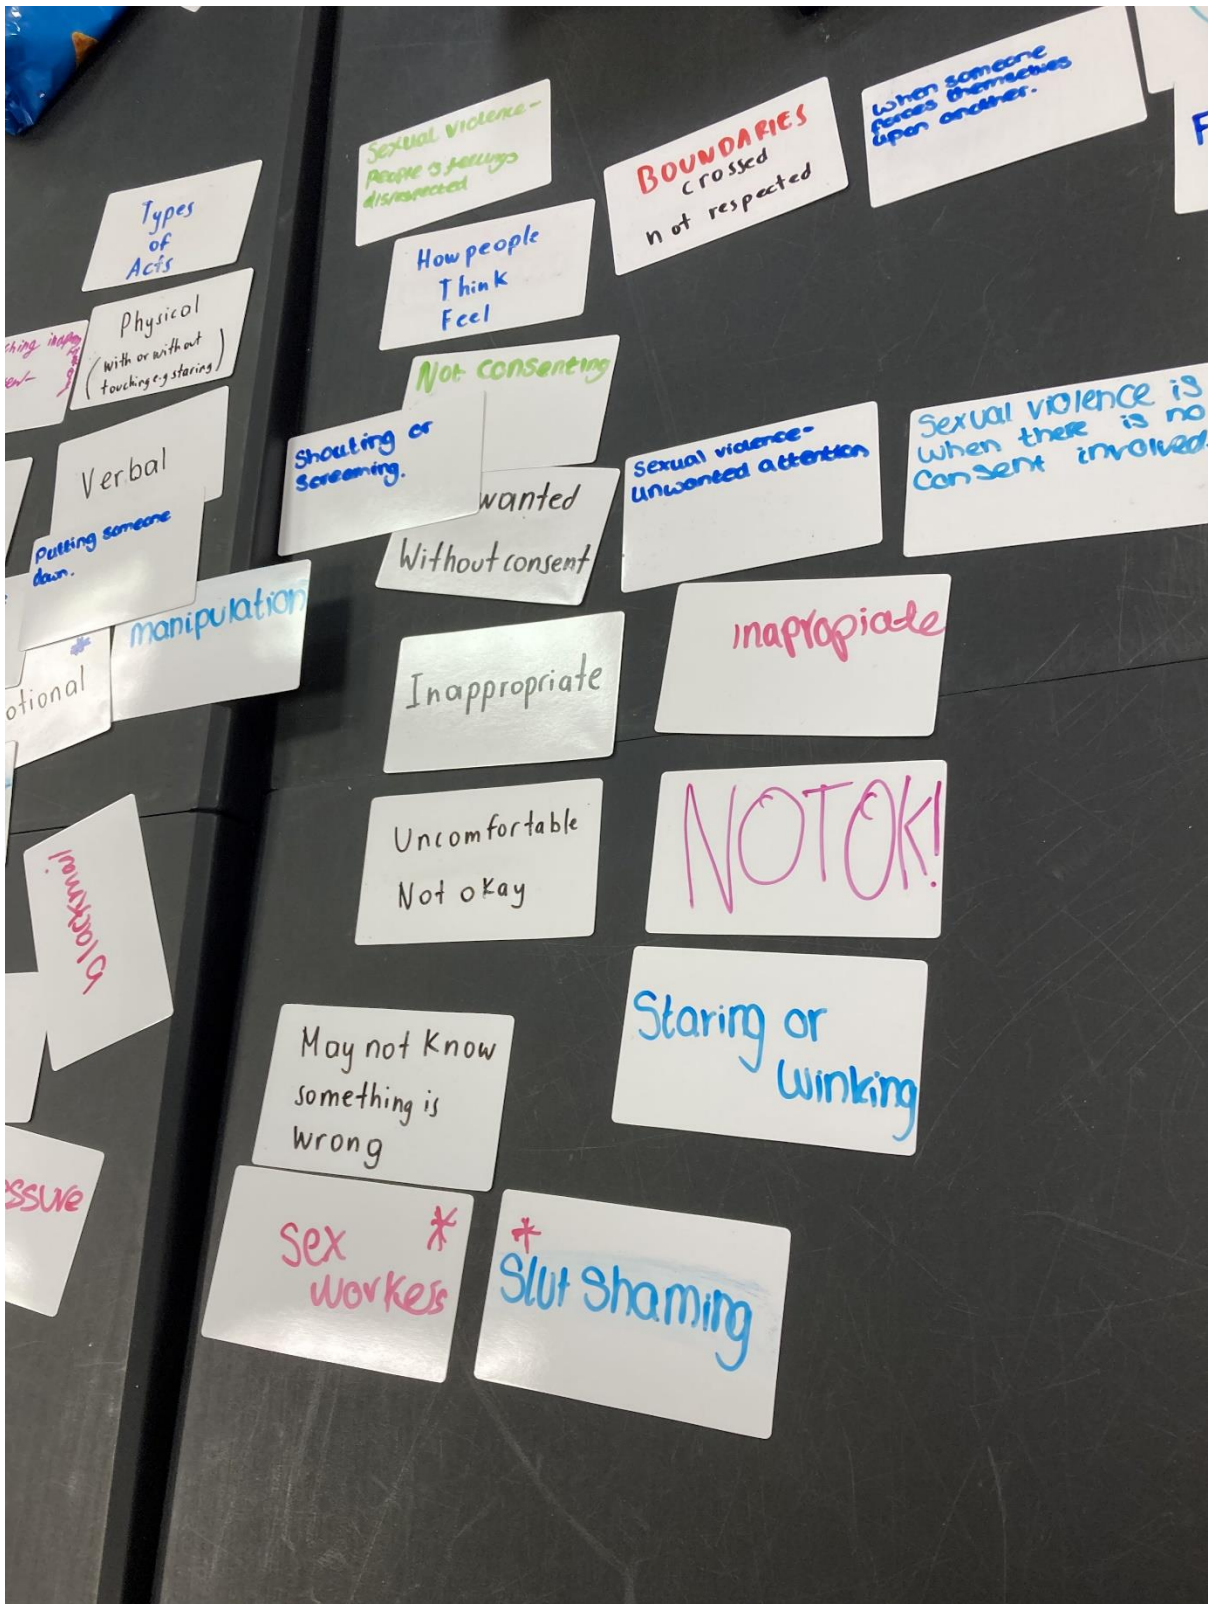 Types
of
Acts
Physical
(with or without
touching e.g staring)
Verbal
Putting someone
down.
manipulation
blackmail
Sexual violence-
people's feelings
disrespected
How people
Think
Feel
Not consenting
Shouting or
screaming.
wanted
Without consent
Inappropriate
Uncomfortable
Not okay
May not know
something is
wrong
Sex *
workers
BOUNDARIES
crossed
not respected
When someone
forces themselves
upon another.
Sexual violence-
unwanted attention
Sexual violence is
when there is no
consent involved.
inapropiate
NOT OK!
Staring or
winking
*
Slut Shaming